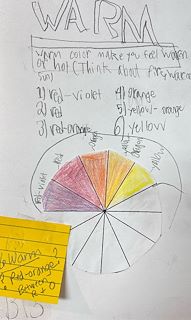 WARM
Warm color make you feel warm
or hot (Think about fire, warm
sun)
1) red-violet 4) orange
2) red 5) yellow-orange
3) red-orange 6) yellow
red-violet
red
orange
yellow
Warm
Red-orange
Between
R + O